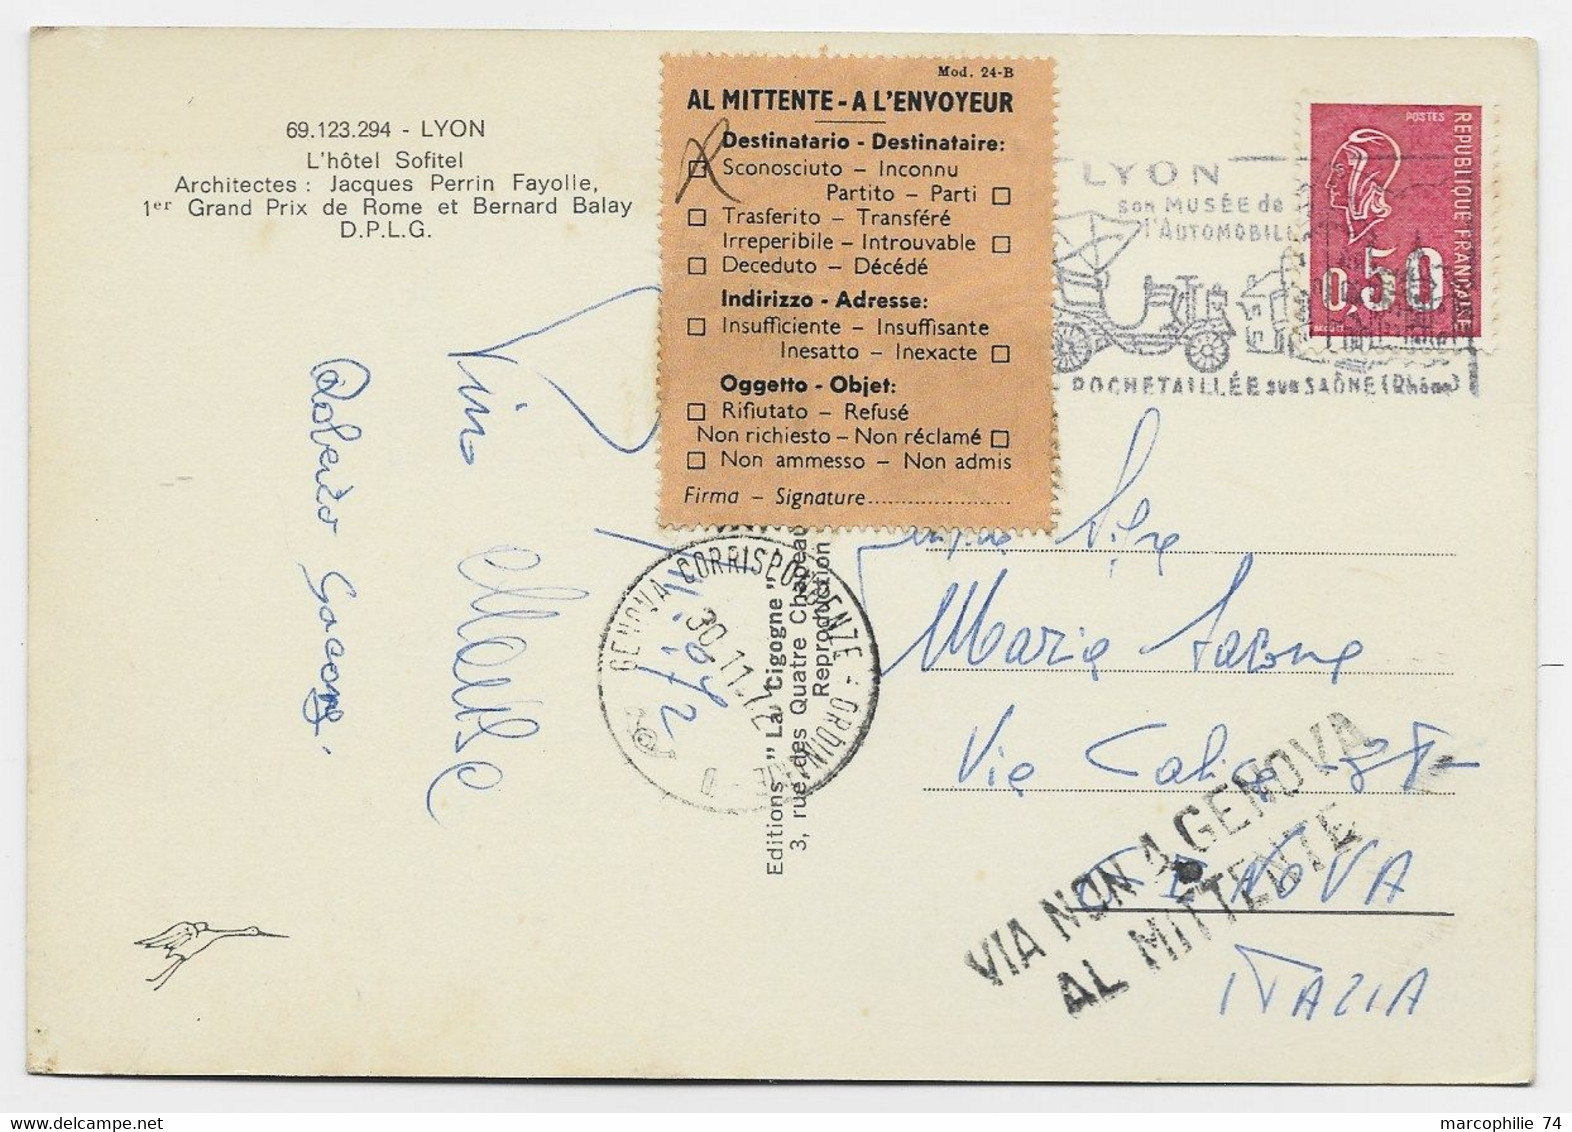 69.123.294 - LYON
L'hôtel Sofitel
Architectes : Jacques Perrin Fayolle,
1er Grand Prix de Rome et Bernard Balay
D.P.L.G.
Mod. 24-B
AL MITTENTE - A L'ENVOYEUR
Destinatario - Destinataire:
Sconosciuto - Inconnu
Partito - Parti
Trasferito - Transféré
Irreperibile - Introuvable
Deceduto - Décédé
Indirizzo - Adresse:
Insufficiente - Insuffisante
Inesatto - Inexacte
Oggetto - Objet:
Rifiutato - Refusé
Non richiesto - Non réclamé
Non ammesso - Non admis
Firma - Signature
LYON
son MUSÉE de
l'AUTOMOBILE
ROCHETAILLÉE sur SAÔNE (Rhône)
POSTES
REPUBLIQUE FRANÇAISE
0,50
GENOVA CORRISPONDENZE - ORDINARIE - D
30.11.72
Editions "La Cigogne"
3, rue des Quatre Chapeaux
Reproduction
Maria
Via
GENOVA
ITALIA
VIA NON A GENOVA
AL MITTENTE
marcophilie 74